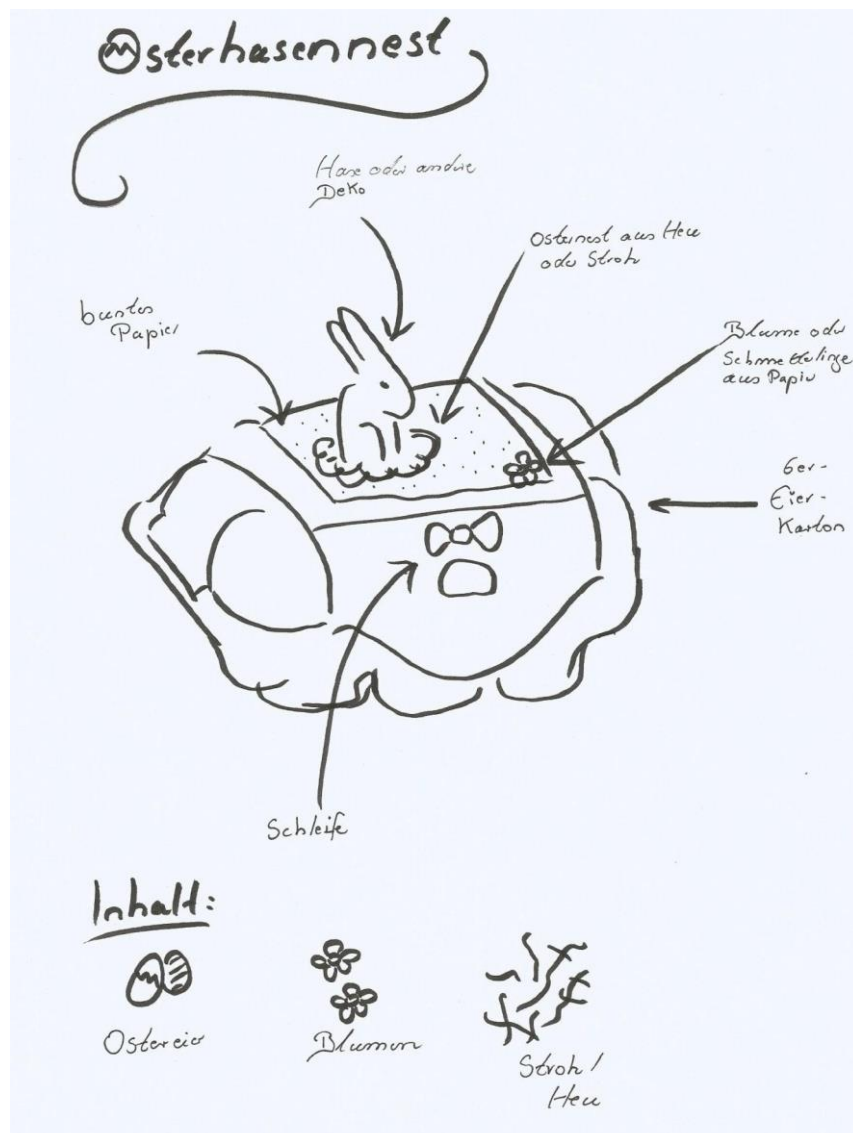 Osterhasennest
Hase oder andre
Deko
Osternest aus Heu
oder Stroh
buntes
Papier
Blume oder
Schmetterlinge
aus Papier
6er-
Eier-
Karton
Schleife
Inhalt:
Ostereier
Blumen
Stroh /
Heu